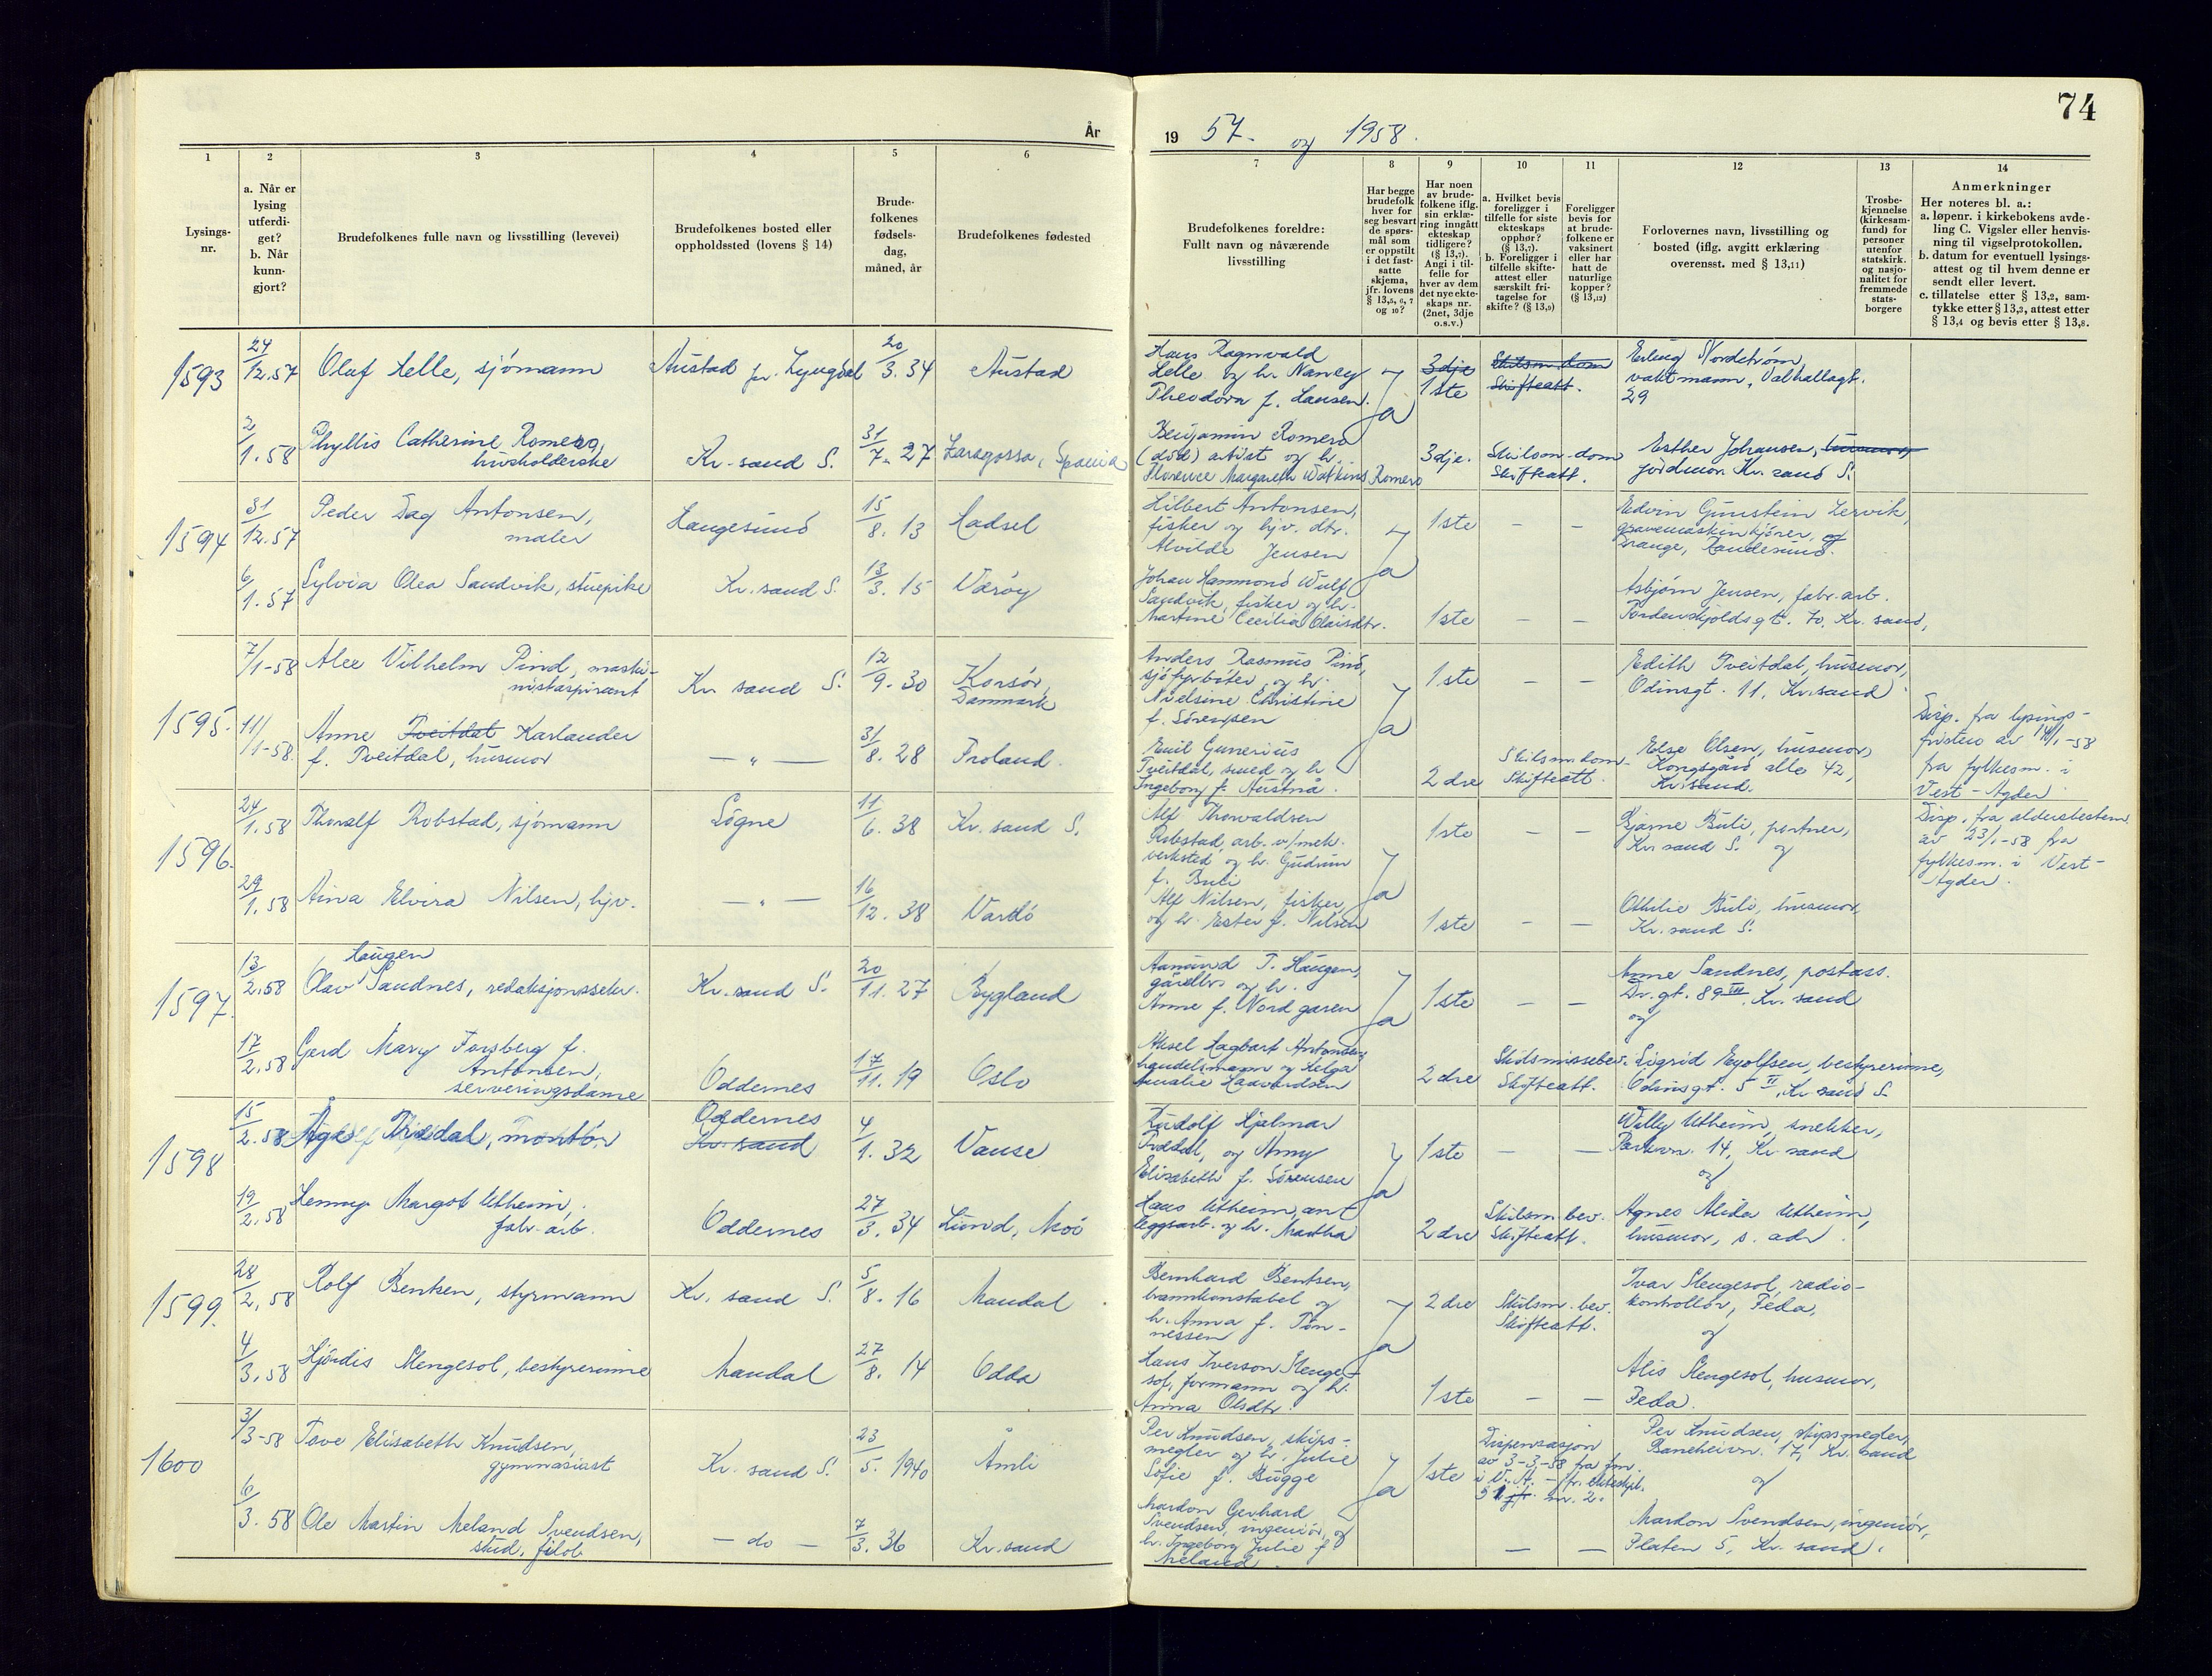 74
År
19 57. og 1958.
1
2
3
4
5
6
7
8
9
10
11
12
13
14
Lysings-
nr.
a. Når er
lysing
utferdi-
get?
b. Når
kunn-
gjort?
Brudefolkenes fulle navn og livsstilling (levevei)
Brudefolkenes bosted eller
oppholdssted (lovens § 14)
Brude-
folkenes
fødsels-
dag,
måned, år
Brudefolkenes fødested
Brudefolkenes foreldre:
Fullt navn og nåværende
livsstilling
Har begge
brudefolk
hver for
seg besvart
de spørs-
mål som
er oppstilt
i det fast-
satte
skjema,
jfr. lovens
§ 13,5, 6, 7
og 10?
Har noen
av brude-
folkene iflg.
sin erklæ-
ring inngått
ekteskap
tidligere?
(§ 13,7).
Angi i til-
felle for
hver av dem
det nye ekte-
skaps nr.
(2net, 3dje
o.s.v.)
a. Hvilket bevis
foreligger i
tilfelle for siste
ekteskaps
opphør?
(§ 13,7).
b. Foreligger i
tilfelle skifte-
attest eller
særskilt fri-
tagelse for
skifte? (§ 13,9)
Foreligger
bevis for
at brude-
folkene er
vaksinert
eller har
hatt de
naturlige
kopper?
(§ 13,12)
Forlovernes navn, livsstilling og
bosted (iflg. avgitt erklæring
overensst. med § 13,11)
Trosbe-
kjennelse
(kirkesam-
fund) for
personer
utenfor
statskirk.
og nasjo-
nalitet for
fremmede
stats-
borgere
Anmerkninger
Her noteres bl. a.:
a. løpenr. i kirkebokens avde-
ling C. Vigsler eller henvis-
ning til vigselprotokollen.
b. datum for eventuell lysings-
attest og til hvem denne er
sendt eller levert.
c. tillatelse etter § 13,2, sam-
tykke etter § 13,3, attest etter
§ 13,4 og bevis etter § 13,8.
1593
24/12.57 Oluf Helle, sjømann
Austad pr. Lyngdal
20/3.34
Austad
Hans Ragnvald
Helle og h. Nancy
Theodora f. Hansen.
Ja
3dje
1ste
Skilsm.dom
Skifteatt.
Erling Nordstrøm,
vaktmann, Valhallagt.
29
2/1.58 Phyllis Catherine Romero,
husholderske
Kr.sand S.
31/7.27
Zaragossa, Spania
Benjamin Romero
(død) artist og h.
Florence Margareth Watkins Romero
3dje.
Skilsm.dom
Skifteatt.
Esther Johansen, husmor,
jordmor Kr.sand S.
1594
31/12.57 Peder Dag Antonsen,
maler
Haugesund
15/8.13
Hadsel
Hilbert Antonsen,
fisker og hjv. dtr.
Alvilde Jensen
Ja
1ste
– –
Edvin Gunstein Lervik,
gravemaskinkjører, og
Drange, Randesund.
6/1.57 Sylvia Olea Sandvik, stuepike
Kr.sand S.
13/3.15
Værøy
Johan Hammond Wulf
Sandvik, fisker og h.
Martine Cecilia Olaisdtr.
1ste
– –
Asbjørn Jensen, fabr.arb.
Tordenskjoldsgt. 70, Kr.sand,
1595.
7/1-58 Alee Vilhelm Pind, maski-
nistaspirant
Kr sand S.
12/9.30
Korsør,
Danmark
Anders Rasmus Pind,
sjåfør og h.
Nielsine Christine
f. Sørensen
Ja
1ste
– –
Edith Tveitdal, husmor,
Odinsgt. 11, Kr.sand
11/1-58. Anne Tveitdal Karlander
f. Tveitdal, husmor
– " –
31/8.28
Froland.
Emil Gunerius
Tveitdal, smed og h
Ingeborg f. Austnå.
2 dre
Skilsm.dom-
Skifteatt.
Else Olsen, husmor,
Kongsgård alle 42,
Kr.sand.
Disp. fra lysings-
fristen av 10/1-58
fra fylkesm. i
Vest-Agder
1596.
24/1.58 Thoralf Robstad, sjømann
Søgne
11/6.38
Kr. sand S.
Alf Thorvaldsen
Robstad, arb. v/mek.
verksted og h. Gudrun
f. Buli
Ja
1ste
– –
Bjarne Buli, portner,
Kr sand S. og
Disp. fra aldersbestem
av 23/1-58 fra
fylkesm. i Vest-
Agder.
29/1.58 Aina Elvira Nilsen, hjv.
– " –
16/12.38
Vardø
Alf Nilsen, fisker,
og h. Ester f. Nilsen
1ste
– –
Othilie Buli, husmor,
Kr.sand S.
1597.
Haugen
13/2.58 Olav Sandnes, redaksjonssekr.
Kr.sand S.
20/11.27
Bygland
Aanund T. Haugen,
gårdbr. og h.
Anne f. Nordgaren
Ja
1ste
– –
Anne Sandnes, postass.
Dr.gt. 89 III, Kr.sand
og
17/2.58 Gerd Mary Forsberg f.
Antonsen,
serveringsdame
Oddernes
17/11.19
Oslo
Aksel Hagbart Antonsen,
handelsmann og Helga
Amalie Haavardsen
2 dre
Skilsmissebev.
Skifteatt.
Sigrid Eyolfsen, bestyrerinne,
Odinsgt. 5 II, Kr sand S.
1598
15/2.58 Tredal, montør
Oddernes
Kr.sand
4/1.32
Vanse
Rudolf Hjalmar
Tredal, og Anny
Elisabeth f. Sørensen
Ja
1ste
– –
Willy Utheim, snekker,
Parkvn. 14, Kr sand
og
19/2.58 Henny Margot Utheim,
fabr.arb.
Oddernes
27/3.34
Lund, Moi
Hans Utheim, an-
leggsarb. og h. Martha
2 dre
Skilsm.bev.
Skifteatt.
Agnes Alida Utheim,
husmor, s. adr.
1599.
28/2.58 Rolf Bentsen, styrmann
Kr. sand S.
5/8.16
Mandal
Bernhard Bentsen,
brannkonstabel og
h. Anna f. Tøn-
nessen
Ja
2 dre
Skilsm.bev.
Skifteatt.
Ivar Stengesol, radio-
kontrollør, Feda,
og
4/3.58 Hjørdis Stengesol, bestyrerinne
Mandal
27/8.14
Odda
Hans Iverson Stenge-
sol, formann og h.
Anna Olsdtr.
1ste
– –
Alis Stengesol, husmor,
Feda.
1600
3/3-58 Tove Elisabeth Knudsen,
gymnasiast
Kr. sand S.
23/5.1940
Åmli
Per Knudsen, skips-
megler og h. Julie
Sofie f. Bugge
Ja
1ste
Dispensasjon
av 3-3-58 fra fm.
i V.A. – jfr. ekteskpl.
§ 1 nr. 2.
Per Knudsen, skipsmegler,
Baneheivn. 17, Kr. sand
og
6/3.58 Ole Martin Meland Svendsen,
stud. filol.
– do –
7/3.36
Kr.sand
Mardon Gerhard
Svendsen, ingeniør, og
h. Ingeborg Julie f
Meland.
– –
Mardon Svendsen, ingeniør,
Platen 5, Kr. sand.